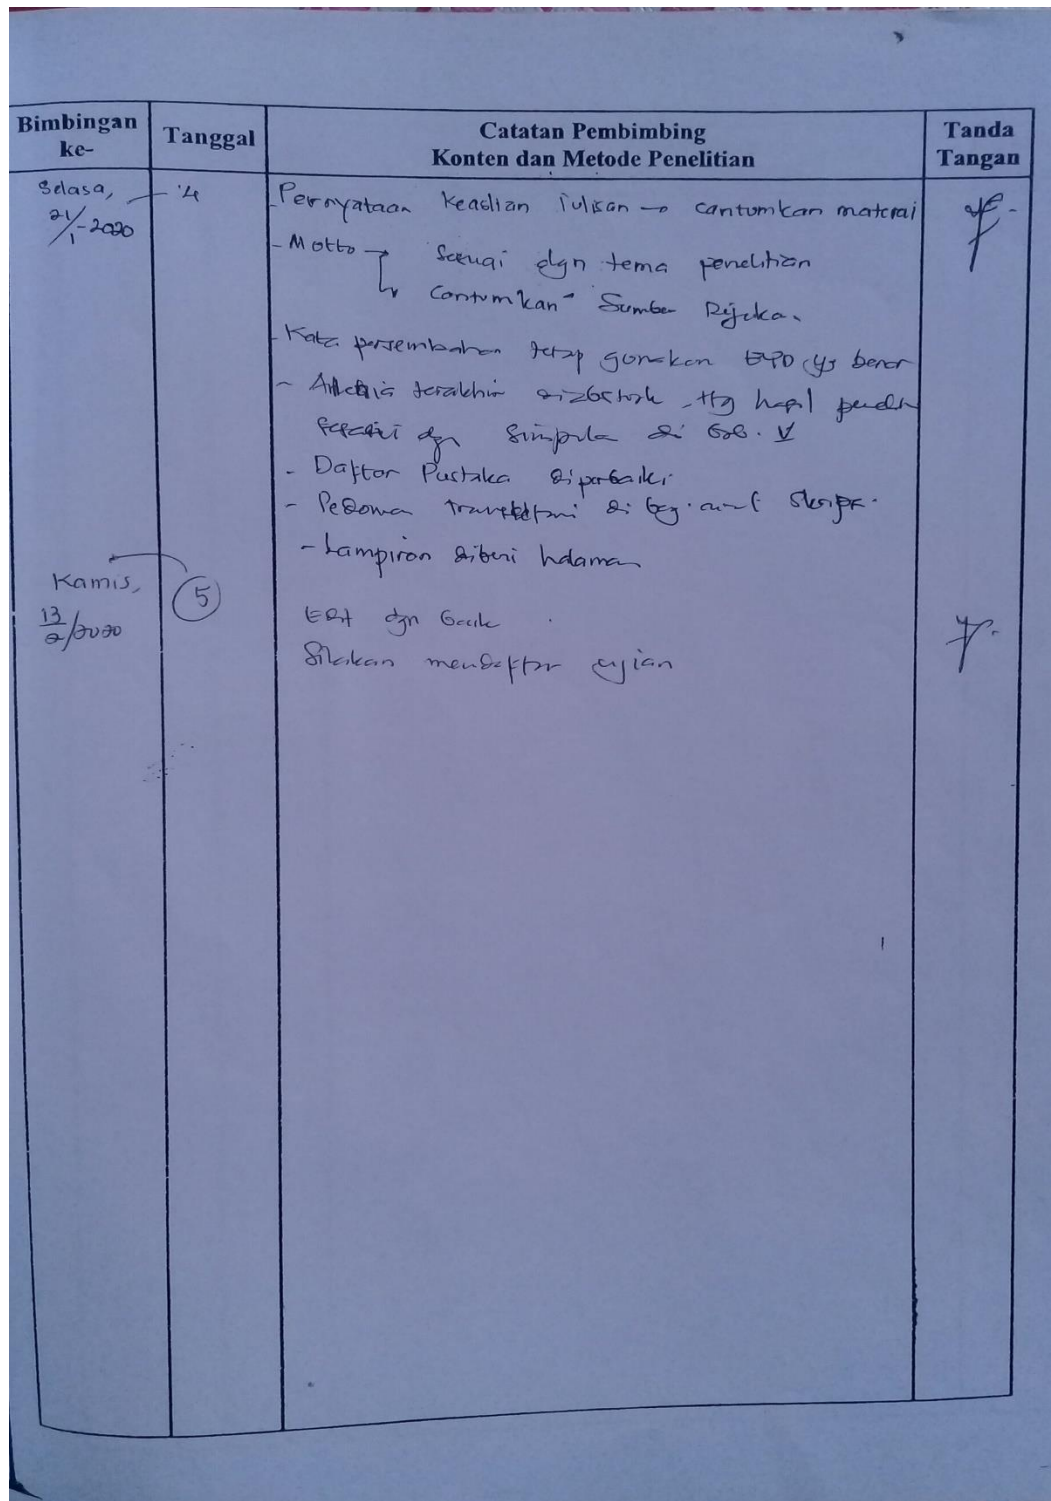 Bimbingan ke-
Tanggal
Catatan Pembimbing
Konten dan Metode Penelitian
Tanda Tangan
Selasa, 4
21/1-2020
Pernyataan Keaslian Tulisan → cantumkan materai
- Motto → sesuai dgn tema penelitian
↳ Cantumkan Sumber
- Kata persembahan tetap gunakan EYD yg benar
- terakhir hasil
dgn Simpula di Bab. V
- Daftar Pustaka diperbaiki
- Pedoman di bag. awal skripsi.
- Lampiran diberi halaman
Kamis, 5
13/2/2020
dgn baik
Silakan mendaftar ujian